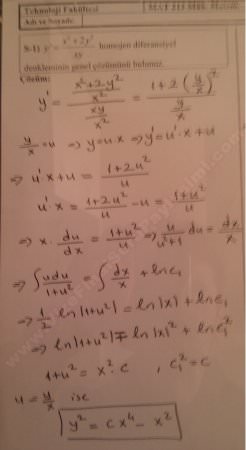 Teknoloji Fakültesi MAT 215 MÜH.
Adı ve Soyadı:
S-1) y' = x²+2y² / xy homojen diferansiyel
denkleminin genel çözümünü bulunuz.
Çözüm:
y' = ((x²+2y²)/x²) / (xy/x²) = (1+2(y/x)²) / (y/x)
y/x = u ⇒ y=u·x ⇒ y'=u'·x+u
⇒ u'x+u = (1+2u²)/u
u'·x = (1+2u²)/u - u = (1+u²)/u
⇒ x·du/dx = (1+u²)/u ⇒ u/(u²+1) du = dx/x
⇒ ∫ udu/(1+u²) = ∫ dx/x + lnc₁
⇒ 1/2 ln|1+u²| = ln|x| + lnc₁
⇒ ln|1+u²| = ln|x|² + lnc₁²
1+u² = x²·c , c₁²=c
u = y/x ise
y² = cx⁴ - x²